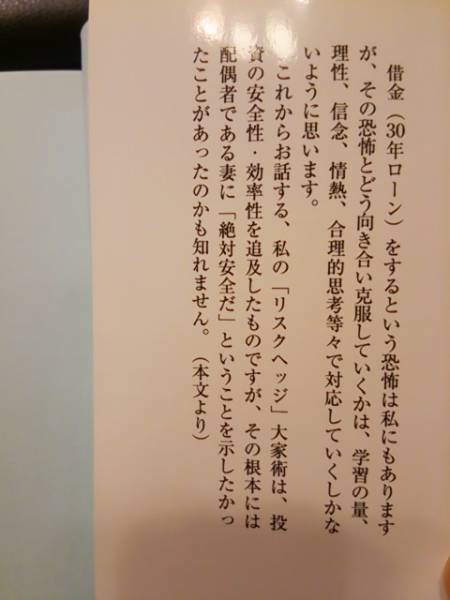 借金（30年ローン）をするという恐怖は私にもあります
が、その恐怖とどう向き合い克服していくかは、学習の量、
理性、信念、情熱、合理的思考等々で対応していくしかな
いように思います。
これからお話する、私の「リスクヘッジ」大家術は、投
資の安全性・効率性を追及したものですが、その根本には
配偶者である妻に「絶対安全だ」ということを示したかっ
たことがあったのかも知れません。（本文より）